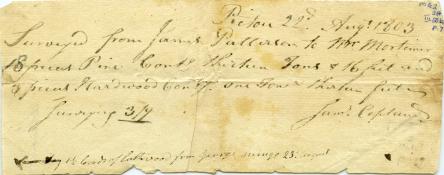 Pictou 22d. Augt 1803
Surveyed from James Patterson to Mr Mortimer
18 pieces Pine Contg thirteen Tons & 16 feet and
pieces Hardwood Contg one Ton thirteen feet
Surveying 3/9
Jams. Copland
Cords of Cutwood from George 23d